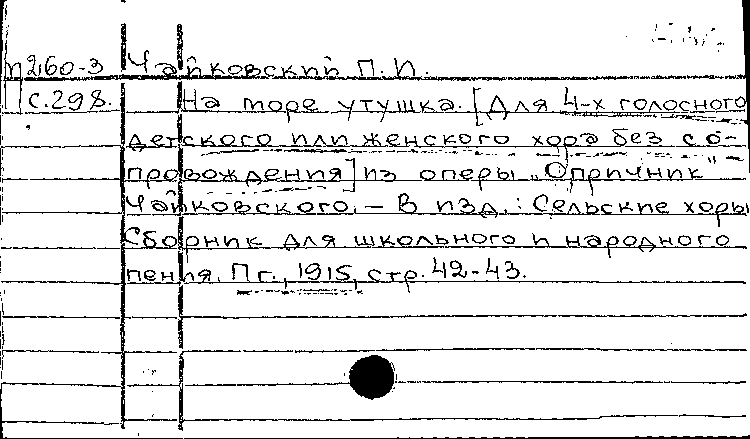 П260-3 Чайковский П.И.
П с.298. На море утушка. [Для 4-х голосного
детского или женского хора без со-
провождения] из оперы „Опричник"
Чайковского. – В изд.: Сельские хоры
Сборник для школьного и народного
пения. Пг., 1915, стр. 42-43.